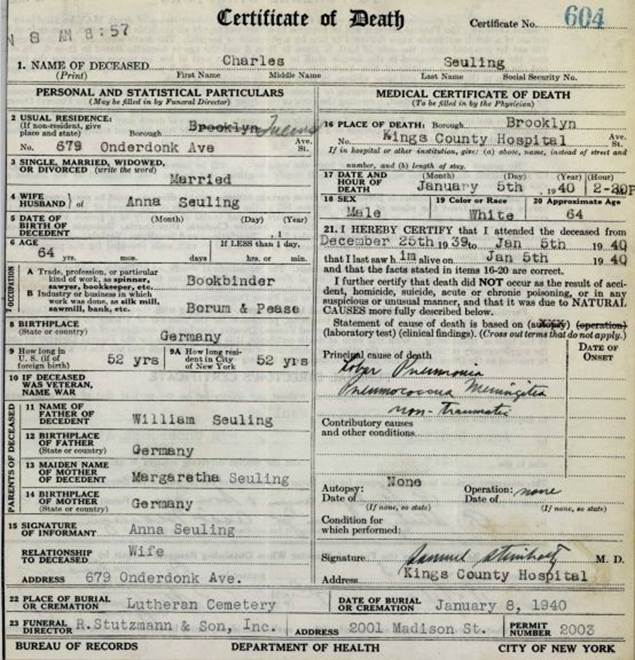 N 8 AM 8:57
Certificate of Death
Certificate No. 604
1. NAME OF DECEASED Charles Seuling
(Print) First Name Middle Name Last Name Social Security No.
PERSONAL AND STATISTICAL PARTICULARS
(May be filled in by Funeral Director)
2 USUAL RESIDENCE:
(If non-resident, give
place and state) Borough Brooklyn Queens
No. 679 Onderdonk Ave Ave. St.
3 SINGLE, MARRIED, WIDOWED,
OR DIVORCED (write the word)
Married
4 WIFE
HUSBAND } of Anna Seuling
5 DATE OF
BIRTH OF
DECEDENT (Month) (Day) (Year)
, 1
6 AGE 64 yrs. mos. days If LESS than 1 day, hrs. or min.
7 OCCUPATION
A Trade, profession, or particular
kind of work, as spinner,
sawyer, bookkeeper, etc. Bookbinder
B Industry or business in which
work was done, as silk mill,
sawmill, bank, etc. Borum & Pease
8 BIRTHPLACE
(State or country) Germany
9 How long in
U. S. (if of
foreign birth) 52 yrs 9A How long resi-
dent in City
of New York 52 yrs
10 IF DECEASED
WAS VETERAN,
NAME WAR
PARENTS OF DECEASED
11 NAME OF
FATHER OF
DECEDENT William Seuling
12 BIRTHPLACE
OF FATHER
(State or country) Germany
13 MAIDEN NAME
OF MOTHER
OF DECEDENT Margaretha Seuling
14 BIRTHPLACE
OF MOTHER
(State or country) Germany
15 SIGNATURE
OF INFORMANT Anna Seuling
RELATIONSHIP
TO DECEASED Wife
ADDRESS 679 Onderdonk Ave.
MEDICAL CERTIFICATE OF DEATH
(To be filled in by the Physician)
16 PLACE OF DEATH: Borough Brooklyn
No. Kings County Hospital Ave. St.
If in hospital or other institution, give: (a) above, name, instead of street and
number, and (b) length of stay.
17 DATE AND
HOUR OF
DEATH (Month) (Day) (Year) (Hour)
January 5th , 1940 2-30P
18 SEX Male 19 Color or Race White 20 Approximate Age 64
21. I HEREBY CERTIFY that I attended the deceased from
December 25th 1939 to Jan 5th 1940
that I last saw him alive on Jan 5th 1940
and that the facts stated in items 16-20 are correct.
I further certify that death did NOT occur as the result of acci-
dent, homicide, suicide, acute or chronic poisoning, or in any
suspicious or unusual manner, and that it was due to NATURAL
CAUSES more fully described below.
Statement of cause of death is based on (autopsy) (operation)
(laboratory test) (clinical findings). (Cross out terms that do not apply.)
Principal cause of death DATE OF ONSET
Lobar Pneumonia
Pneumococcus Meningitis
non-traumatic
Contributory causes
and other conditions
Autopsy: None Operation: none
Date of Date of
(If none, so state) (If none, so state)
Condition for
which performed:
Signature Samuel M. D.
Address Kings County Hospital
22 PLACE OF BURIAL
OR CREMATION Lutheran Cemetery DATE OF BURIAL
OR CREMATION January 8, 1940
23 FUNERAL
DIRECTOR R.Stutzmann & Son, Inc. ADDRESS 2001 Madison St. PERMIT
NUMBER 2003
BUREAU OF RECORDS DEPARTMENT OF HEALTH CITY OF NEW YORK